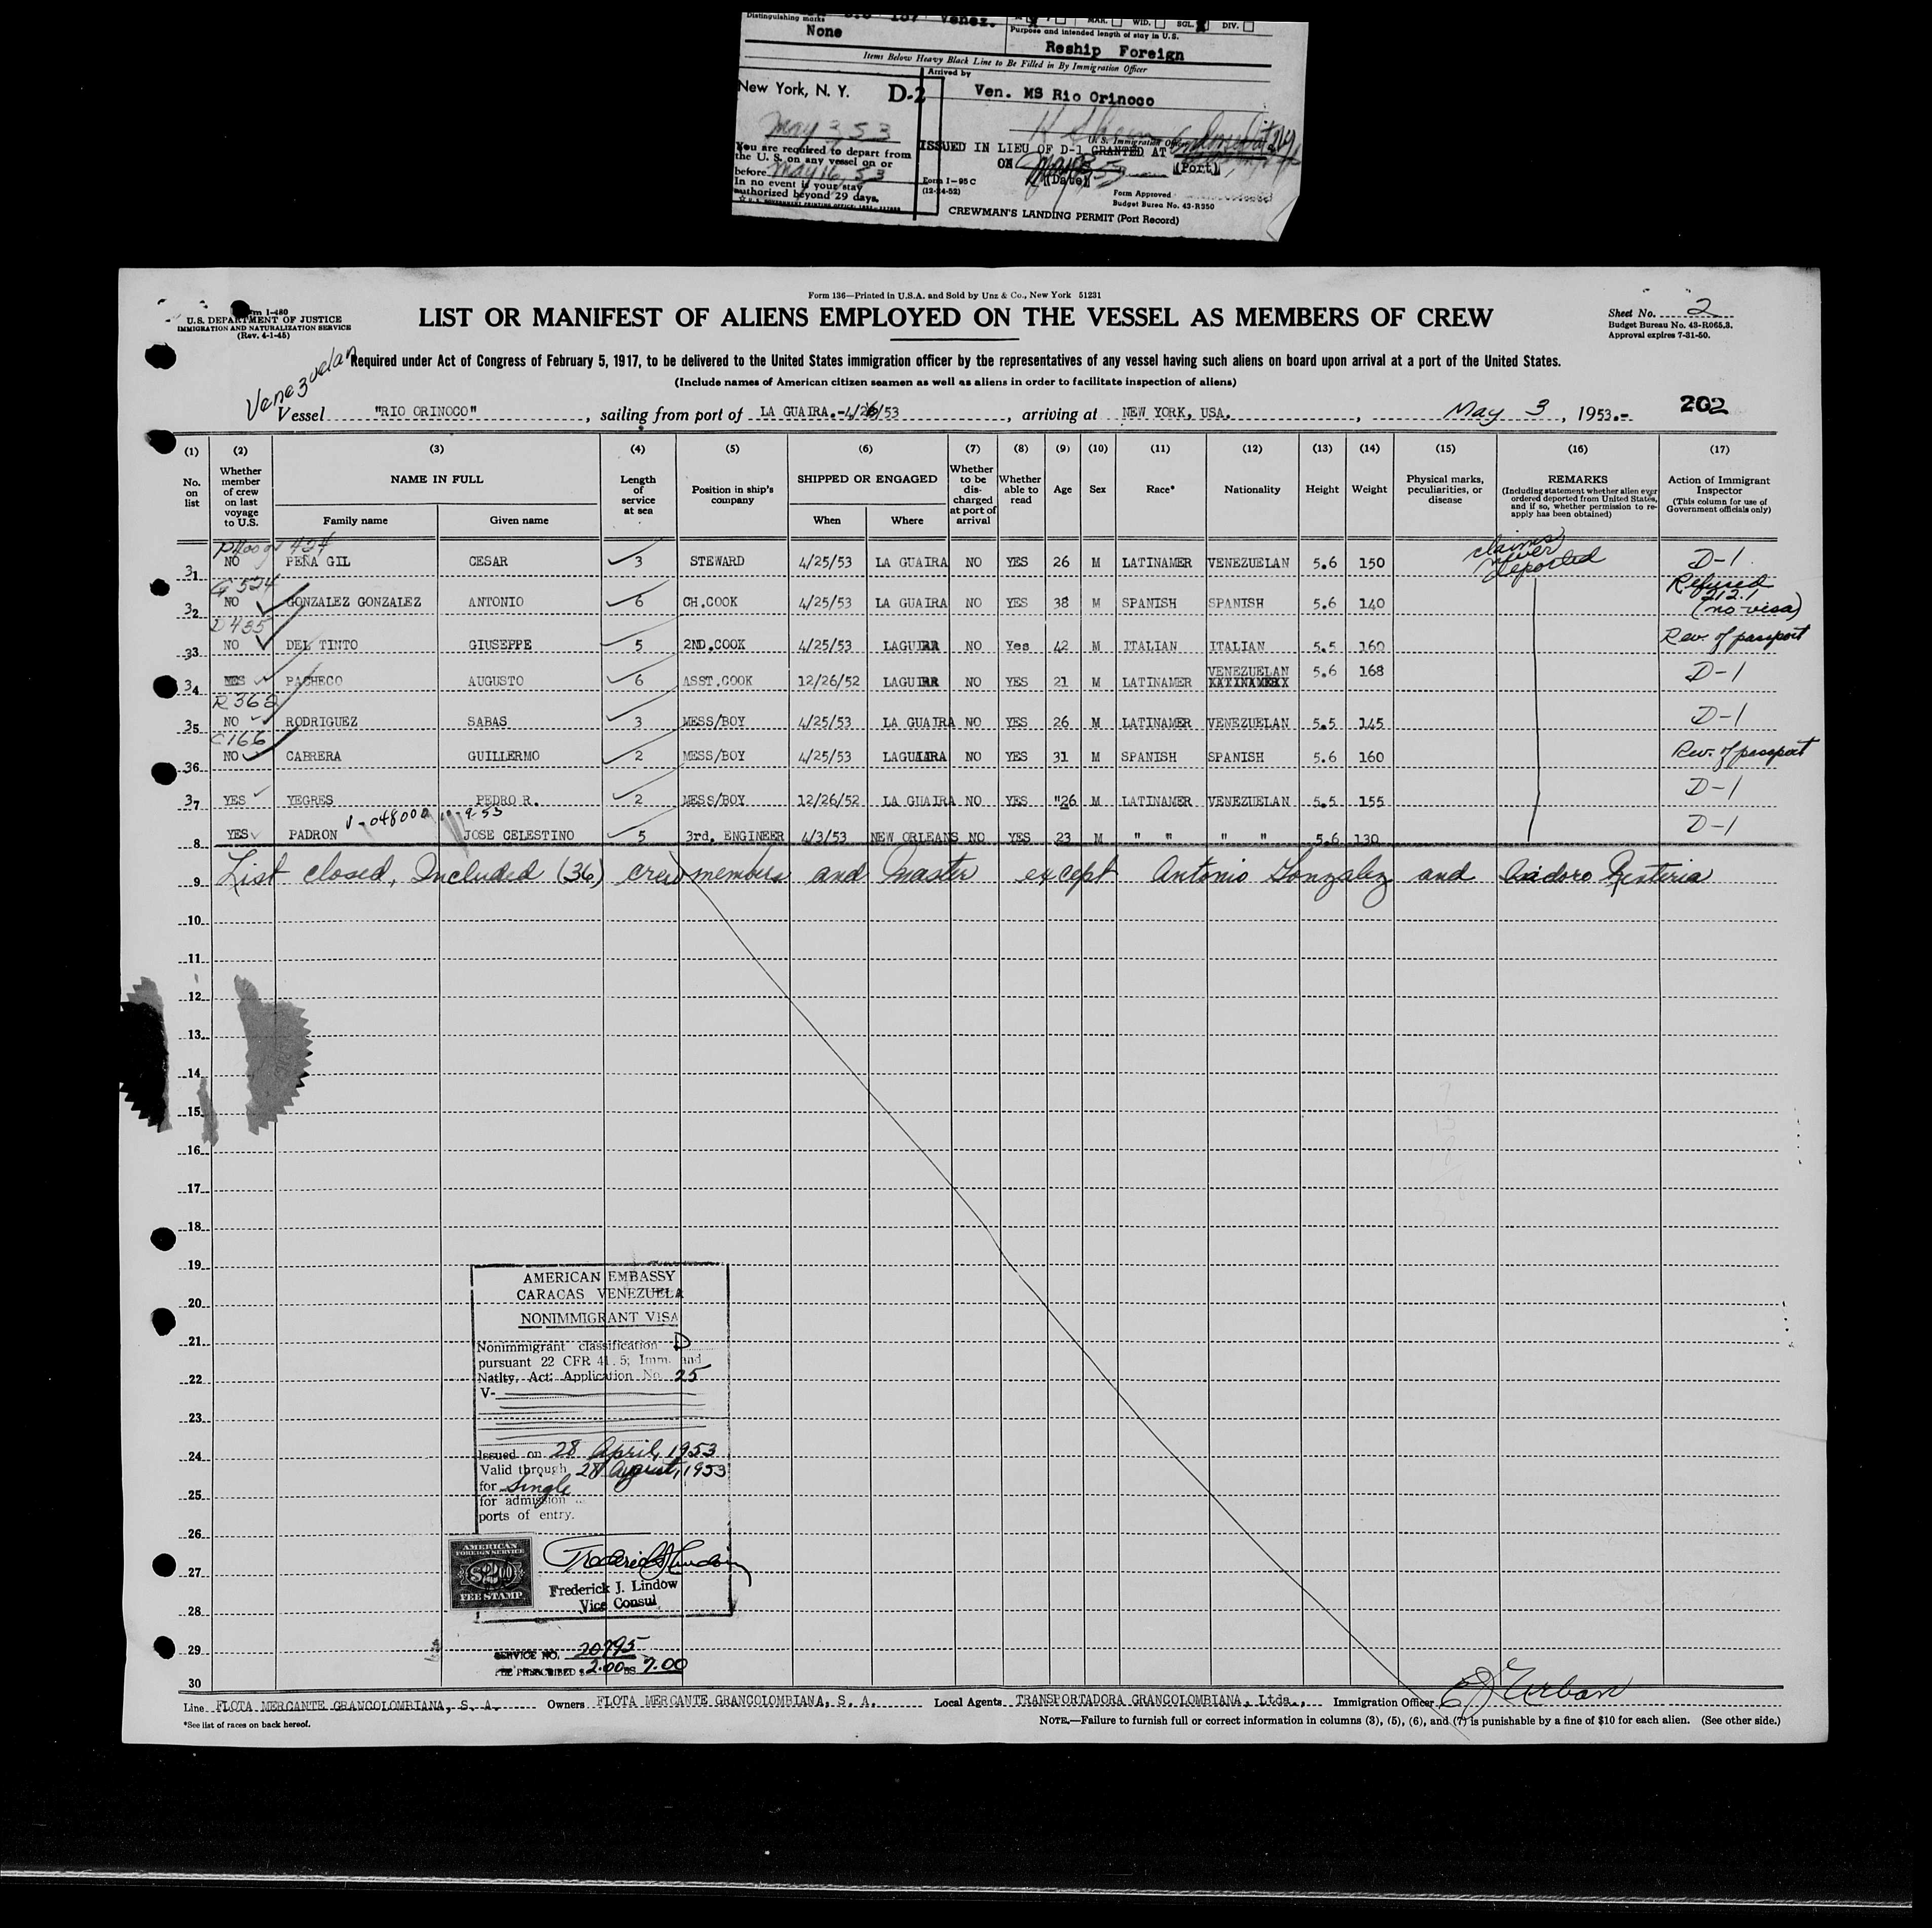 Distinguishing marks
None
MAR. WID. SGL. DIV.
Purpose and intended length of stay in U.S.
Reship Foreign
Items Below Heavy Black Line to Be Filled in By Immigration Officer
New York, N. Y. D-2
Arrived by
Ven. MS Rio Orinoco
May 3 53
U. S. Immigration Officer
You are required to depart from
the U. S. on any vessel on or
before May 16, 53
In no event is your stay
authorized beyond 29 days.
ISSUED IN LIEU OF D-1 GRANTED AT
ON (Date) (Port)
Form I-95 C
(12-24-52)
Form Approved
Budget Bureau No. 43-R350
CREWMAN'S LANDING PERMIT (Port Record)
Form 136—Printed in U.S.A. and Sold by Unz & Co., New York 51231
Form I-480
U.S. DEPARTMENT OF JUSTICE
IMMIGRATION AND NATURALIZATION SERVICE
(Rev. 4-1-45)
LIST OR MANIFEST OF ALIENS EMPLOYED ON THE VESSEL AS MEMBERS OF CREW
Sheet No. 2
Budget Bureau No. 43-R065.3.
Approval expires 7-31-50.
Required under Act of Congress of February 5, 1917, to be delivered to the United States immigration officer by the representatives of any vessel having such aliens on board upon arrival at a port of the United States.
(Include names of American citizen seamen as well as aliens in order to facilitate inspection of aliens)
Venezuelan
Vessel "RIO ORINOCO", sailing from port of LA GUAIRA.-4/26/53, arriving at NEW YORK, USA., May 3, 1953.- 202
(1) (2) (3) (4) (5) (6) (7) (8) (9) (10) (11) (12) (13) (14) (15) (16) (17)
No. on list
Whether member of crew on last voyage to U.S.
NAME IN FULL
Family name Given name
Length of service at sea
Position in ship's company
SHIPPED OR ENGAGED
When Where
Whether to be discharged at port of arrival
Whether able to read
Age Sex Race* Nationality Height Weight
Physical marks, peculiarities, or disease
REMARKS
(Including statement whether alien ever ordered deported from United States, and if so, whether permission to reapply has been obtained)
Action of Immigrant Inspector
(This column for use of Government officials only)
31 NO PEÑA GIL CESAR 3 STEWARD 4/25/53 LA GUAIRA NO YES 26 M LATINAMER VENEZUELAN 5.6 150 claims never deported D-1
G 524
32 NO GONZALEZ GONZALEZ ANTONIO 6 CH.COOK 4/25/53 LA GUAIRA NO YES 38 M SPANISH SPANISH 5.6 140 Refused 212.1 (no visa)
D 435
33 NO DEL TINTO GIUSEPPE 5 2ND.COOK 4/25/53 LAGUIRA NO Yes 42 M ITALIAN ITALIAN 5.5 160 Rev. of passport
34 YES PACHECO AUGUSTO 6 ASST.COOK 12/26/52 LAGUIRA NO YES 21 M LATINAMER VENEZUELAN 5.6 168 D-1
R 362
35 NO RODRIGUEZ SABAS 3 MESS/BOY 4/25/53 LA GUAIRA NO YES 26 M LATINAMER VENEZUELAN 5.5 145 D-1
C 166
36 NO CABRERA GUILLERMO 2 MESS/BOY 4/25/53 LAGUAIRA NO YES 31 M SPANISH SPANISH 5.6 160 Rev. of passport
37 YES YEGRES PEDRO R. 2 MESS/BOY 12/26/52 LA GUAIRA NO YES "26 M LATINAMER VENEZUELAN 5.5 155 D-1
8 YES PADRON JOSE CELESTINO 5 3rd. ENGINEER 4/3/53 NEW ORLEANS NO YES 23 M " " " " 5.6 130 D-1
9 List closed, Included (36) crewmembers and Master except Antonio Gonzalez and Isidoro Renteria
10
11
12
13
14
15
16
17
18
19
20
21
22
23
24
25
26
27
28
29
30
AMERICAN EMBASSY
CARACAS VENEZUELA
NONIMMIGRANT VISA
Nonimmigrant classification D
pursuant 22 CFR 41.5; Imm. and
Natlty. Act: Application No. 25
V-
Issued on 28 April, 1953
Valid through 28 August, 1953
for Single
for admission
ports of entry.
AMERICAN
FOREIGN SERVICE
$2.00
FEE STAMP
Frederick J. Lindow
Frederick J. Lindow
Vice Consul
SERVICE NO. 20795
FEE PRESCRIBED $2.00 BS 7.00
Line FLOTA MERCANTE GRANCOLOMBIANA, S. A. Owners FLOTA MERCANTE GRANCOLOMBIANA, S. A. Local Agents TRANSPORTADORA GRANCOLOMBIANA, Ltda., Immigration Officer EJ Urban
*See list of races on back hereof.
NOTE.—Failure to furnish full or correct information in columns (3), (5), (6), and (7) is punishable by a fine of $10 for each alien. (See other side.)